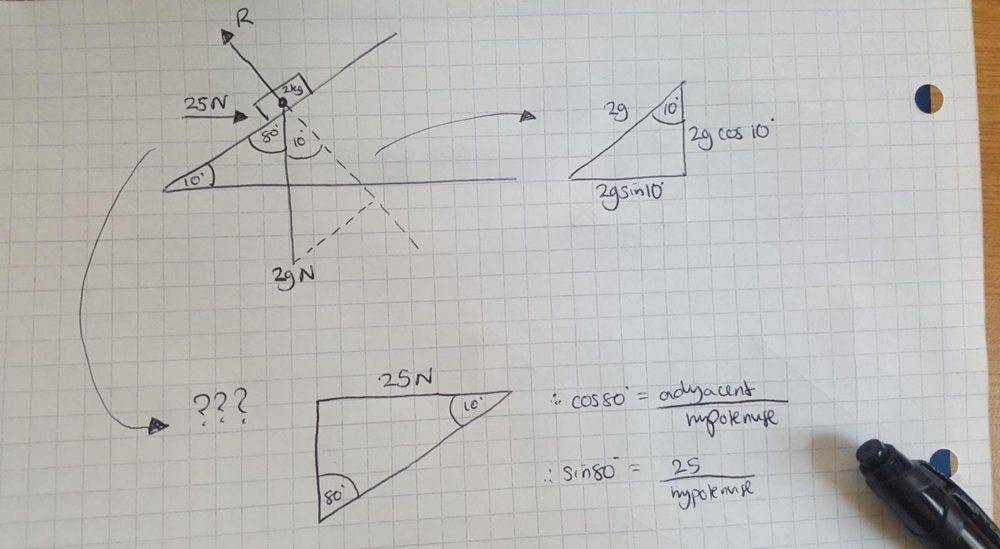 R
2kg
25N
80°
10°
10°
2gN
2g
10°
2g cos 10°
2gsin10°
???
25N
10°
80°
∴ cos80° = adyacent
hypotenuse
∴ sin80° = 25
hypotenuse